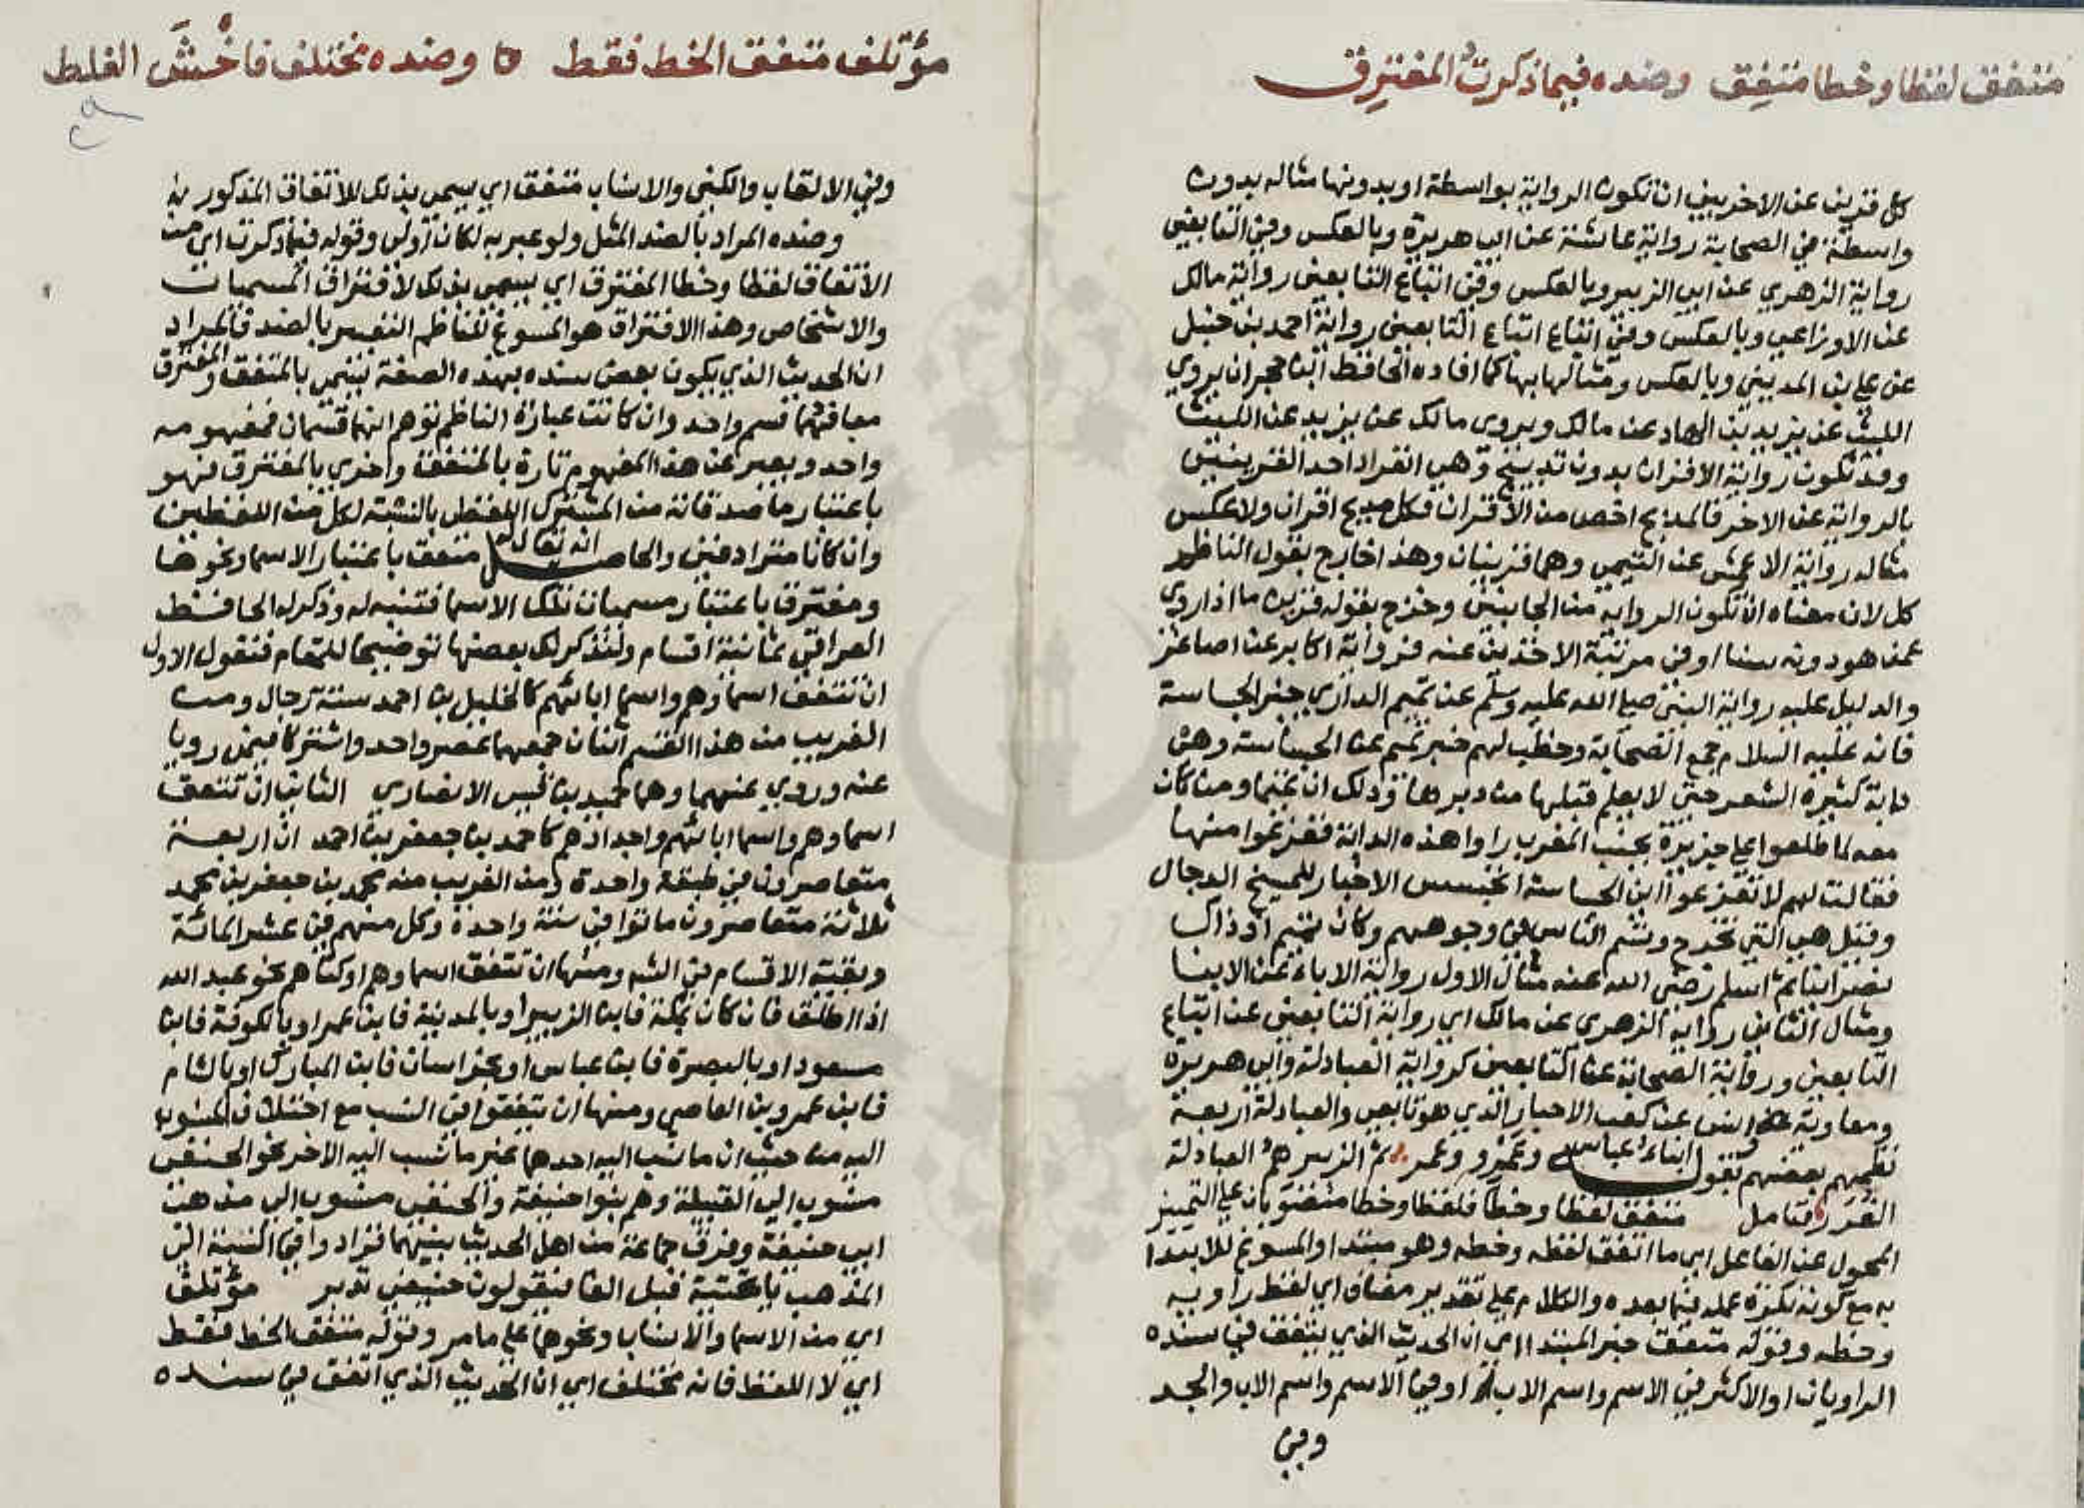 متفق لفظا وخطا متفق وضده فيما ذكرت المفترق
كل قرين عن الاخر يعني ان تكون الرواية بواسطة او بدونها مثاله بدون
واسطة في الصحابة رواية عائشة عن ابي هريرة وبالعكس وفي التابعين
رواية الزهري عن ابي الزبير وبالعكس وفي اتباع التابعين رواية مالك
عن الاوزاعي وبالعكس وفي اتباع اتباع التابعين رواية احمد بن حنبل
عن علي بن المديني وبالعكس ومثالها بها كما افاده الحافظ ابن حجر ان يروي
الليث عن يزيد بن الهاد عن مالك ويروى مالك عن يزيد عن الليث
وقد تكون رواية الاقران بدون تدبيج وهي انفراد احد القرينين
بالرواية عن الاخر فالمدبج اخص من الاقران فكل مدبج اقران ولا عكس
مثاله رواية الاعمش عن التيمي وهما قرينان وهذا خارج بقول الناظم
كل لان معناه ان تكون الرواية من الجانبين وخرج بقوله قرين ما اذا روي
عمن هو دونه سنا او في مرتبة الاخذين عنه فرواية اكابر عن اصاغر
والدليل عليه رواية النبي صلى الله عليه وسلم عن تميم الداري خبر الجساسة
فانه عليه السلام جمع الصحابة وخطب لهم خبر تميم عن الجساسة وهي
دابة كثيرة الشعر حتى لا يعلم قبلها من دبرها وذلك ان تميما ومن كان
معه لما طلعوا على جزيرة بجنب المغرب راوا هذه الدابة ففزعوا منها
فقالت لهم لا تفزعوا انى الجساسة اتجسس الاخبار للمسيخ الدجال
وقيل هي التي تخرج وتشم الناس في وجوههم وكان تميم اذ ذاك
نصرانيا ثم اسلم رضي الله عنه مثال الاول رواية الاباء عن الابنا
ومثال الثاني رواية الزهري عن مالك اي رواية التابعين عن اتباع
التابعين ورواية الصحابة عن التابعين كرواية العبادلة وابي هريرة
ومعاوية وانس عن كعب الاحبار الذي هو تابعي والعبادلة اربعة
نظمهم بعضهم بقوله ابناء عباس وعمرو وعمر ثم الزبير هم العبادلة
الغرر فتامل متفق لفظا وخطا فلفظا وخطا منصوبان على التمييز
المحول عن الفاعل اي ما اتفق لفظه وخطه وهو مبتدا والمسوغ للابتدا
به مع كونه نكرة عمله فيما بعده والكلام على تقدير مضاف اي لفظ راويه
وخطه وقوله متفق خبر المبتدا اي ان الحديث الذي يتفق في سنده
الراويان او الاكثر في الاسم واسم الاب او في الاسم واسم الاب والجد
وفي
مؤتلف متفق الخط فقط وضده مختلف فاخش الغلط
وفي الالقاب والكنى والانساب متفق اي يسمى بذلك للاتفاق المذكور فيه
وضده المراد بالضد المثل ولو عبر به لكان اولى وقوله فيما ذكرت اي من
الاتفاق لفظا وخطا المفترق اي يسمى بذلك لافتراق المسميات
والاشخاص وهذا الافتراق هو المسوغ للناظم التفسير بالضد فالمراد
ان الحديث الذي يكون بعض سنده بهذه الصفة يسمى بالمتفق والمفترق
معا فهما قسم واحد وان كانت عبارة الناظم توهم انهما قسمان فمفهومه
واحد ويعبر عن هذا المفهوم تارة بالمتفق واخرى بالمفترق فهو
باعتبار ما صدقاته من المشترك اللفظي بالنسبة لكل من اللفظين
وان كانا مترادفين والحاصل انه يقال له متفق باعتبار الاسما ونحوها
ومفترق باعتبار مسميات تلك الاسما فتنبه له وذكر له الحافظ
العراقي ثمانية اقسام ولنذكر لك بعضها توضيحا للمقام فنقول الاول
ان تتفق اسماوهم واسما ابائهم كالخليل بن احمد ستة رجال ومن
الغريب من هذا القسم اثنان جمعهما عصر واحد واشتركا فيمن رويا
عنه وروي عنهما وهما حميد بن قيس الانصاري الثاني ان تتفق
اسماوهم واسما ابائهم واجدادهم كاحمد بن جعفر بن احمد ان اربعة
متعاصرون في طبقة واحدة ومن الغريب منه محمد بن جعفر بن محمد
ثلاثة متعاصرون ماتوا في سنة واحدة وكل منهم في عشر المائة
وبقية الاقسام في الشر ومنها ان تتفق اسماوهم او كناهم نحو عبد الله
اذا اطلق فان كان بمكة فابن الزبير او بالمدينة فابن عمر او بالكوفة فابن
مسعود او بالبصرة فابن عباس او بخراسان فابن المبارك او بالشام
فابن عمرو بن العاصي ومنها ان يتفقوا في النسب مع اختلاف المنسوب
اليه من حيث ان ما نسب اليه احدهما غير ما نسب اليه الاخر نحو الحنفي
منسوب الى القبيلة وهم بنوا حنيفة والحنفي منسوب الى مذهب
ابي حنيفة وفرق جماعة من اهل الحديث بينهما فزادوا في النسبة الى
المذهب يا تحتية قبل الفا فيقولون حنيفي تدبر مؤتلف
اي من الاسما والانساب ونحوها على ما مر وقوله متفق الخط فقط
اي لا اللفظ فانه مختلف اي ان الحديث الذي اتفق في سنده